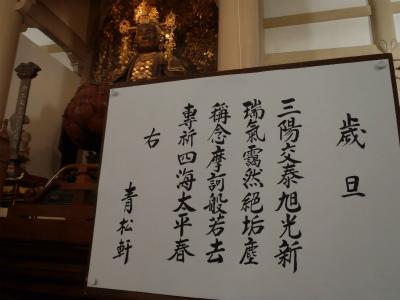 歳旦
三陽交泰旭光新
瑞氣靄然絕垢塵
稱念摩訶般若去
專祈四海太平春
右
青松軒